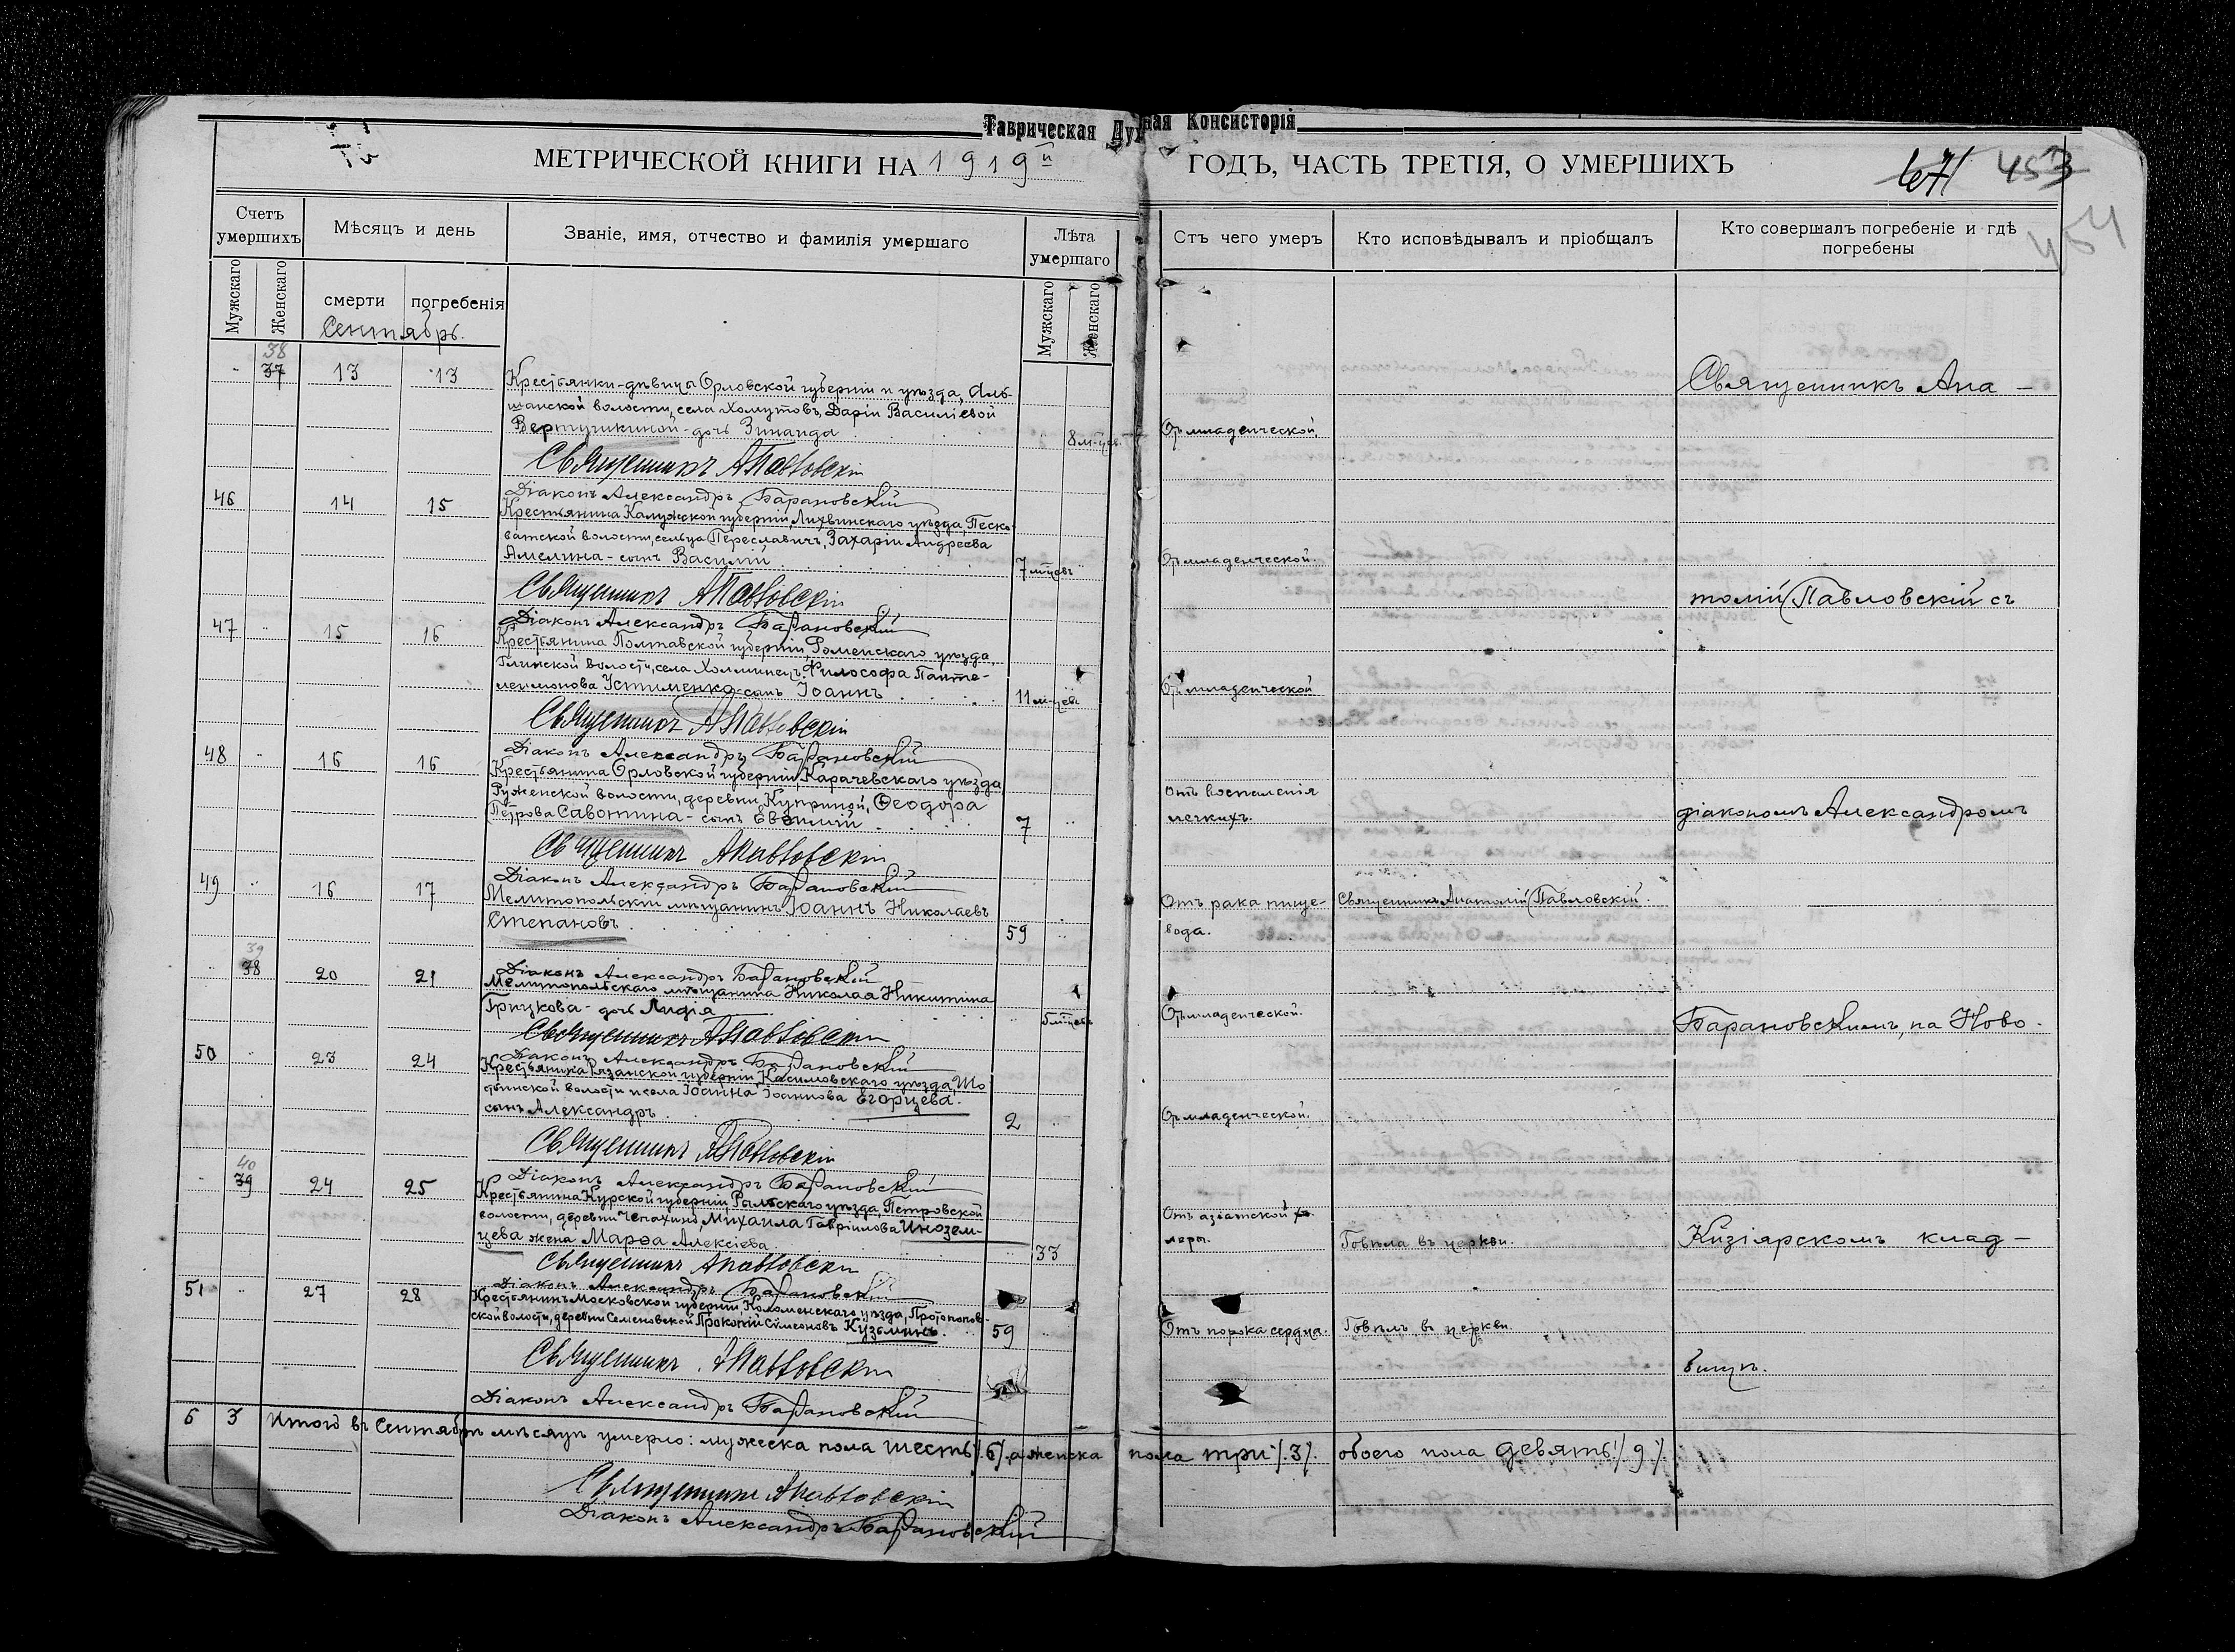 Таврическая Духовная Консисторія
МЕТРИЧЕСКОЙ КНИГИ НА 1919й ГОДЪ, ЧАСТЬ ТРЕТІЯ, О УМЕРШИХЪ
453
454
Счетъ умершихъ
Мѣсяцъ и день
Званіе, имя, отчество и фамилія умершаго
Лѣта умершаго
Отъ чего умеръ
Кто исповѣдывалъ и пріобщалъ
Кто совершалъ погребеніе и гдѣ погребены
Мужскаго
Женскаго
смерти
погребенія
Мужскаго
Женскаго
Сентябрь.
38
37 13 13 Крестьянки-дѣвицы Орловской губерніи и уѣзда, Аль-
шанской волости, села Хомутовъ, Даріи Василіевой
Вертушкиной - дочь Зинаида 8 м-цев. Отъ младенческой.
Священникъ Ана-
Священникъ АПавловскій
Діаконъ Александръ Барановскій
46 14 15 Крестьянина Калужской губерніи, Лихвинскаго уѣзда, Песко-
ватской волости, сельца Переславичъ, Захаріи Андреева
Амелина - сынъ Василій 7 м-цевъ Отъ младенческой.
Священникъ АПавловскій
толій Павловскій съ
Діаконъ Александръ Барановскій
47 15 16 Крестьянина Полтавской губерніи, Роменскаго уѣзда,
Глинской волости, села Холминецъ, Философа Панте-
леимонова Устименко - сынъ Іоаннъ 11 м-цев Отъ младенческой
Священникъ АПавловскій
Діаконъ Александръ Барановскій
48 16 16 Крестьянина Орловской губерніи, Карачевскаго уѣзда
Руженской волости, деревни Куприной, Ѳеодора
Петрова Савотина - сынъ Евѳимій 7
Отъ воспаленія
легкихъ.
діакономъ Александромъ
Священникъ АПавловскій
Діаконъ Александръ Барановскій
49 16 17 Мелитопольскій мѣщанинъ Іоаннъ Николаевъ
Степановъ. 59
Отъ рака пище-
вода.
Священникъ Анатолій Павловскій.
Діаконъ Александръ Барановскій
39
38 20 21 Мелитопольскаго мѣщанина Николая Никитина
Грицкова - дочь Лидія м-цевъ Отъ младенческой.
Священникъ АПавловскій
Барановскимъ, на Ново-
Діаконъ Александръ Барановскій
50 23 24 Крестьянина Рязанской губерніи, Касимовскаго уѣзда,
волости и села Іоанна Іоаннова Егорцева
сынъ Александръ. 2 Отъ младенческой.
Священникъ АПавловскій
Діаконъ Александръ Барановскій
40
39 24 25 Крестьянина Курской губерніи, Рыльскаго уѣзда, Петровской
волости, деревни Михаила Гавріилова Инозем-
цева жена Марѳа Алексіева 33
Отъ азіатской хо-
леры.
Говѣла въ церкви.
Кизіярскомъ клад-
Священникъ АПавловскій
Діаконъ Александръ Барановскій
51 27 28 Крестьянинъ Московской губерніи, Коломенскаго уѣзда, Протопопов-
ской волости, деревни Семеновской Прокопій Симеоновъ Кузьминъ. 59 Отъ порока сердца. Говѣлъ въ церкви.
Священникъ АПавловскій
бищѣ.
Діаконъ Александръ Барановскій
6 3 Итого въ Сентябрѣ мѣсяцѣ умерло: мужеска пола шесть /.6/. а женска пола три /.3/. обоего пола девять /.9/.
Священникъ АПавловскій
Діаконъ Александръ Барановскій